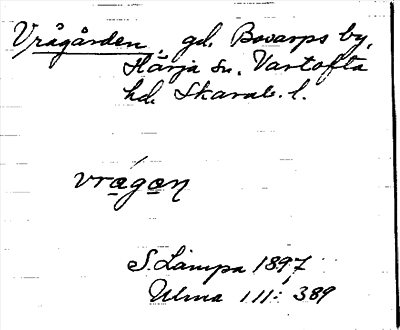 Vrågården, gd. Bovarps by,
Härja sn. Vartofta
hd. Skarab. l.
vrågan
S. Lampa 1897
Ulma 111: 389